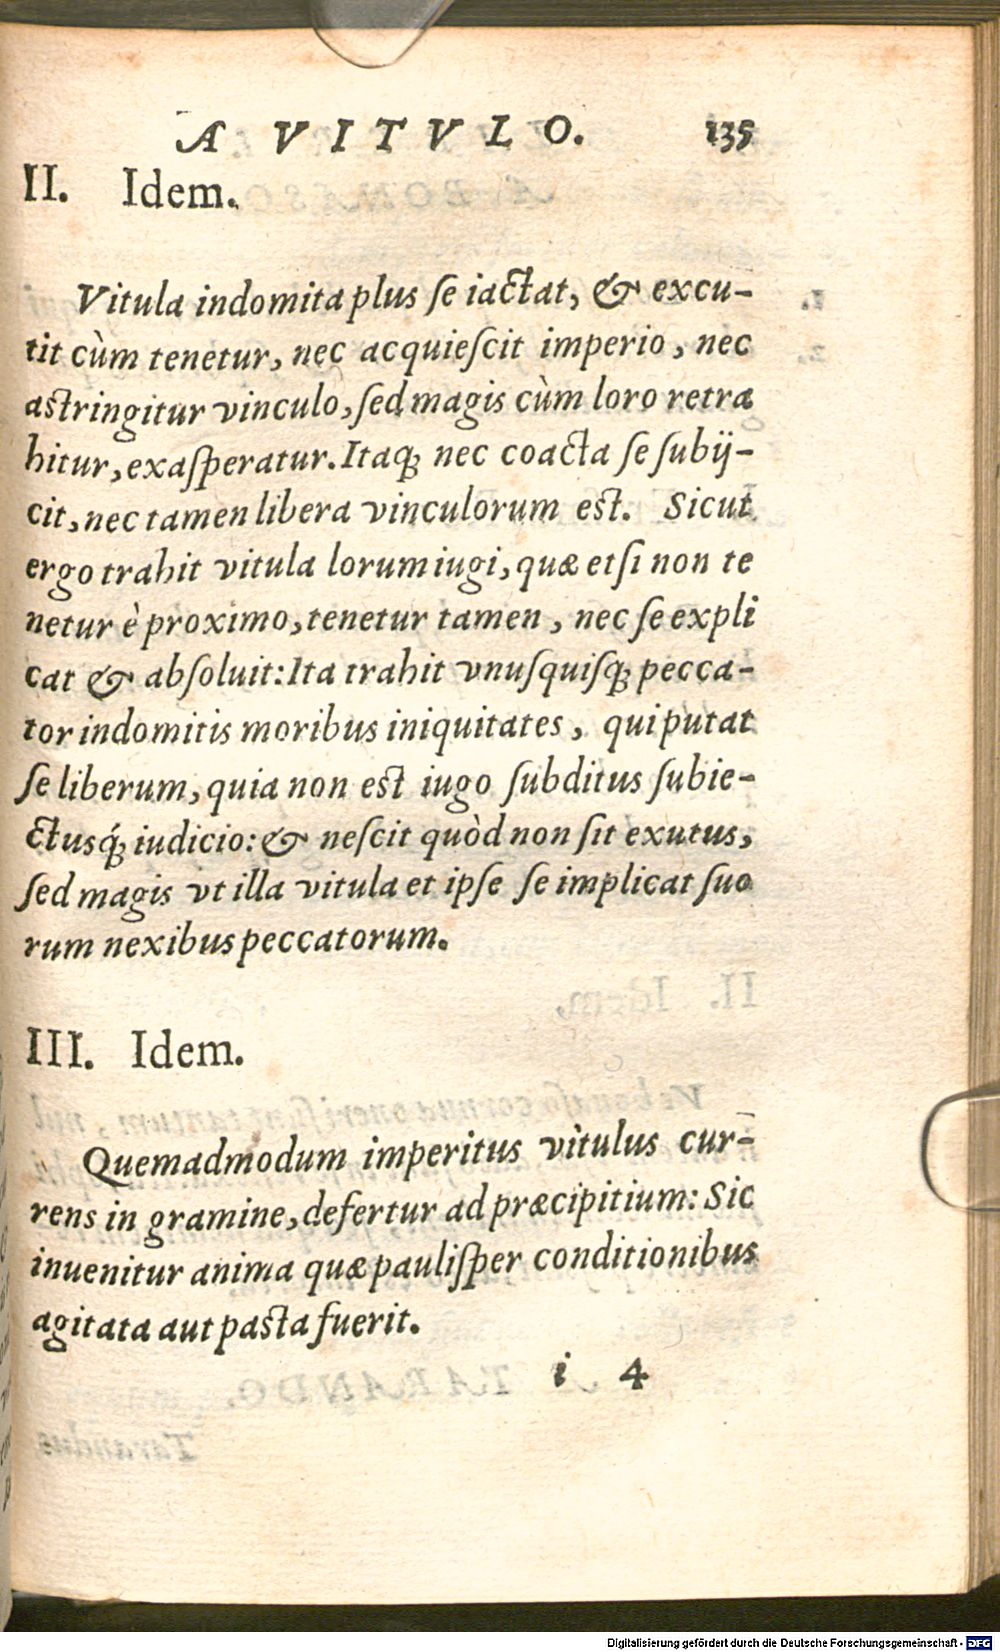 A VITVLO. 135
II. Idem.
Vitula indomita plus ſe iactat, & excu-
tit cùm tenetur, nec acquieſcit imperio, nec
aſtringitur vinculo, ſed magis cùm loro retra
hitur, exaſperatur. Itaq; nec coacta ſe ſubij-
cit, nec tamen libera vinculorum eſt. Sicut
ergo trahit vitula lorum iugi, quæ etſi non te
netur è proximo, tenetur tamen, nec ſe expli
cat & abſoluit: Ita trahit vnuſquiſq; pecca-
tor indomitis moribus iniquitates, qui putat
ſe liberum, quia non eſt iugo ſubditus ſubie-
ctusq́; iudicio: & neſcit quòd non ſit exutus,
ſed magis vt illa vitula et ipſe ſe implicat ſuo
rum nexibus peccatorum.
III. Idem.
Quemadmodum imperitus vitulus cur-
rens in gramine, defertur ad præcipitium: Sic
inuenitur anima quæ pauliſper conditionibus
agitata aut paſta fuerit.
i 4
Digitalisierung gefördert durch die Deutsche Forschungsgemeinschaft - DFG